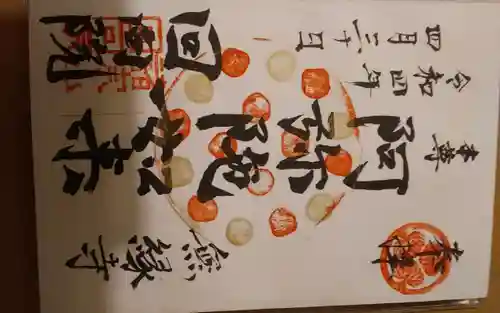 奉拝
本尊
阿弥陀如来
令和四年
四月三十日
無縁寺
回向院